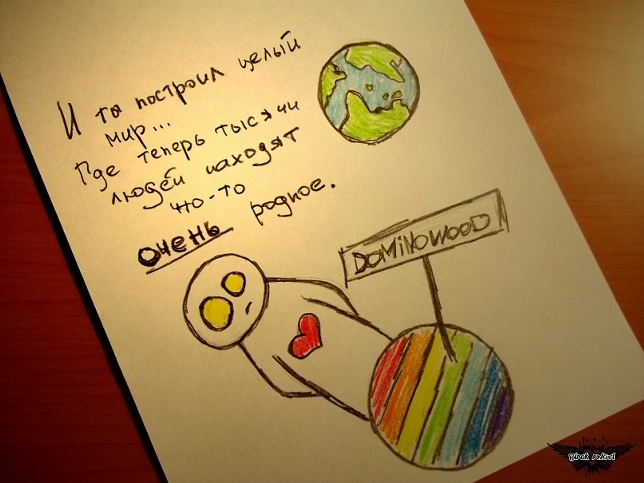 И ты построил целый
мир...
Где теперь тысячи
людей находят
что-то
очень родное.
DOMINOWOOD